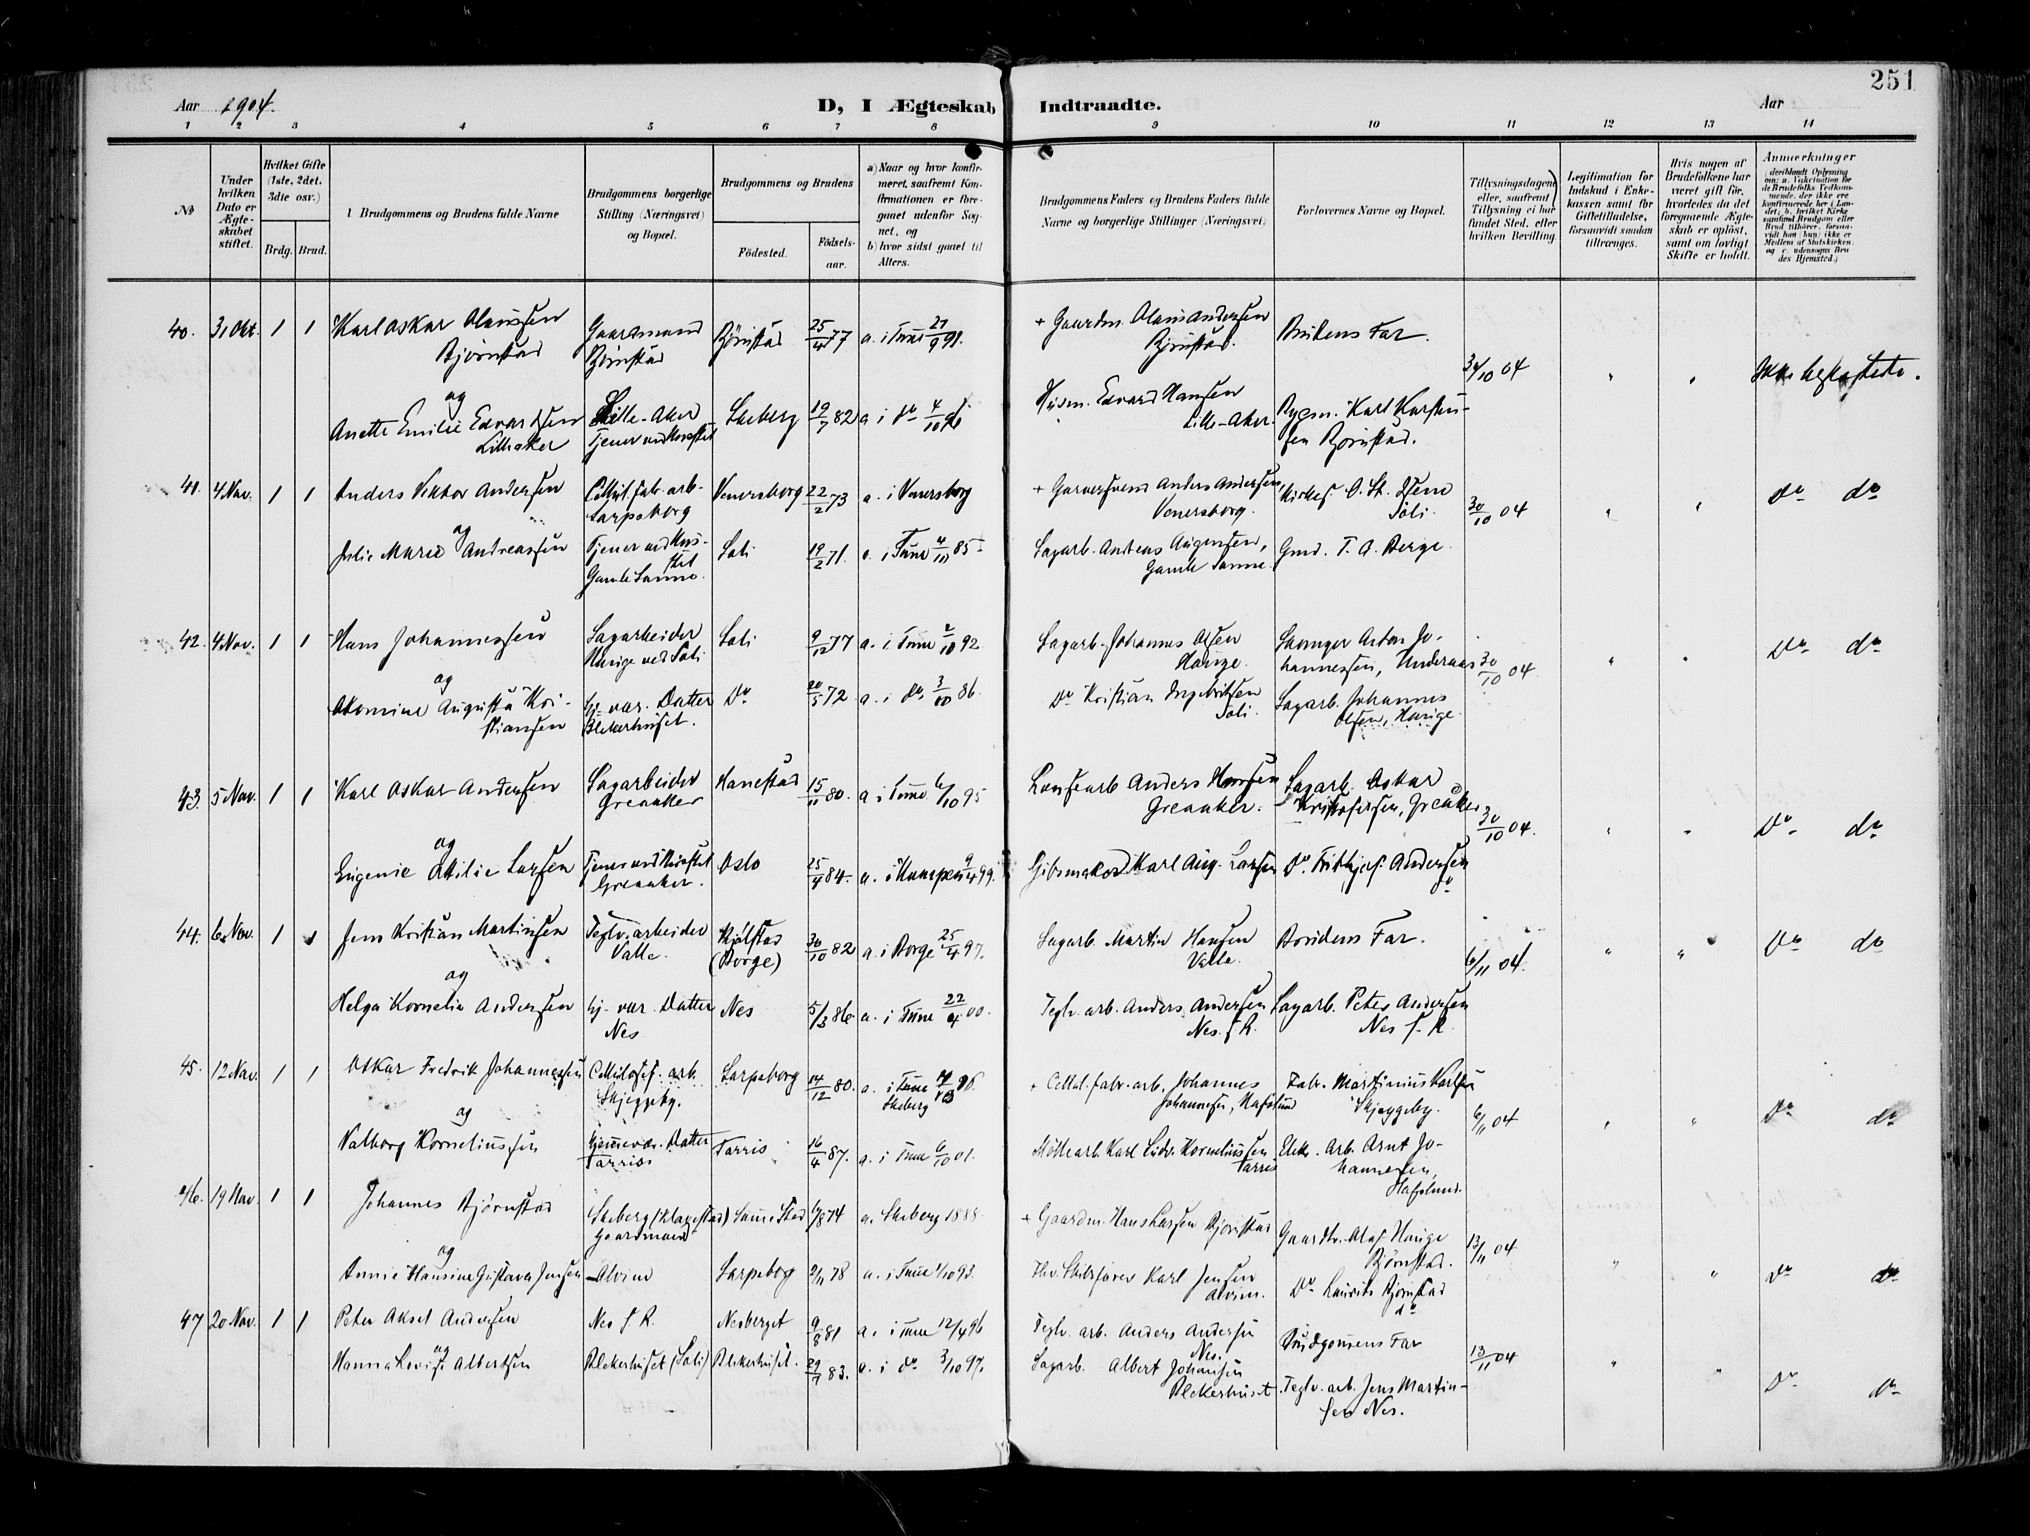 251
Aar 1904.
D, I Ægteskab Indtraadte.
Aar
1 2 3 4 5 6 7 8 9 10 11 12 13 14
No
Under hvilken Dato er Ægteskabet stiftet.
Hvilket Gifte (1ste, 2det, 3die osv.)
Brdg. Brud.
1 Brudgommens og Brudens fulde Navne
Brudgommens borgerlige Stilling (Næringsvei) og Bopæl.
Brudgommens og Brudens
Fødested.
Fødsels-aar.
a) Naar og hvor konfirmeret, saafremt Konfirmationen er foregaaet udenfor Sognet, og
b) hvor sidst gaaet til Alters.
Brudgommens Faders og Brudens Faders fulde Navne og borgerlige Stillinger (Næringsvei)
Forlovernes Navne og Bopæl.
Tillysningsdagene eller, saafremt Tillysning ei har fundet Sted, efter hvilken Bevilling.
Legitimation for Indskud i Enkekassen samt for Giftetilladelse, forsaavidt saadan tiltrænges.
Hvis nogen af Brudefolkene har været gift før, hvorledes da det foregaaende Ægteskab er opløst, samt om lovligt Skifte er holdt.
Anmærkninger
40. 31 Okt. 1 1 Karl Oskar Olaussen Bjørnstad Gaardmand Bjørnstad Bjørnstad 25/4 77 a. i Tune 27/9 91. + Gaardm. Olaus Andersen Bjørnstad. Brudens Far.
30/10 04 " " Ikke beslægtede.
og
Anette Emilie Edvardsen Lilleaker Lille-Aker Tjener ved Huset Skeberg 19/7 82 a i do 4/10 96 Husm. Edvard Hansen Lille-Aker. Bygsm. Karl Karstensen Bjørnstad.
41. 4 Nov. 1 1 Anders Viktor Andersen Cellul.fabr.arb. Sarpsborg Venersborg 22/2 73 a. i Venersborg + Garversvend Anders Andersen, Venersborg. Kirkes. O. St. Soli. 30/10 04 " " Do do
og
Julie Marie Andreassen Tjener ved Huset Gamle Sanne. Soli 19/2 71. a. i Tune 4/10 85 Sagarb. Andreas Augensen, Gamle Sanne. Gmd. T. A. Berge.
42. 4 Nov. 1 1 Hans Johannessen Sagarbeider Hauge ved Soli Soli 9/12 77 a. i Tune 2/10 92 Sagarb. Johannes Olsen Hauge. Anton Johannessen, Underaas 30/10 04 " " Do do
og
Augusta Kristiansen hj. vær. Datter Blekerhuset. Do 20/5 72 a. i do 3/10 86. Do Kristian Ingebritsen Soli. Sagarb. Johannes Olsen, Hauge.
43. 5 Nov. 1 1 Karl Oskar Andersen Sagarbeider Greaaker Hanestad 15/11 80. a i Tune 6/10 95 Anders Hansen Greaaker. Sagarb. Oskar Kristofersen, Greaaker 30/10 04. " " Do do
og
Eugenie Otilie Larsen Tjener ved Huset Greaaker. Oslo 25/4 84. a. i Kampen 9/4 99. Gibsmaker Karl Aug. Larsen Do Fridtjof Andersen do
44. 6 Nov 1 1 Jens Kristian Martinsen Teglv. arbeider Valle. Kjølstad (Borge) 30/10 82 a. i Borge 25/4 97. Sagarb. Martin Hansen Valle. Brudens Far. 6/11 04. " " Do do
og
Helga Kornelia Andersen hj. vær. Datter Nes Nes 5/3 86 a. i Tune 22/4 00. Teglv. arb. Anders Andersen Nes f. R. Sagarb. Peter Andersen Nes f. R.
45. 12 Nov. 1 1 Oskar Fredrik Johannessen Cellulosef. arb. Skjeggeby. Sarpsborg 14/12 80. a. i Tune Skeberg + Cellul. fabr. arb. Johannes Johannesen, Hafslund Fabr. Martinius Karlsen Skjeggeby. 6/11 04 " " Do do
og
Valborg Korneliussen hjemmevær. Datter Tarris Tarris 16/4 87. a. i Tune 6/10 01. Møllearb. Karl Ludv. Korneliussen Tarris Elekr. Arb. Arnt Johannesen, Hafslund.
46. 19 Nov. 1 1 Johannes Bjørnstad Skeberg (Klavestad) Gaardmand Samme Sted 6/8 74 a. Skeberg 1888 + Gaardm. Hans Larsen Bjørnstad Gaardbr. Olaf Hauge Bjørnstad. 13/11 04 " " Do do
og
Annie Hansine Gustava Jensen Alvim Sarpsborg 2/11 78 a. i Tune 1/10 93. Skibsfører Karl Jensen Alvim. Do Laurits Bjørnstad do
47 20 Nov. 1 1 Peter Aksel Andersen Nes f. R. Nesberget 9/8 81 a. i Tune 12/4 96 Teglv. arb. Anders Andersen Nes. Brudgommens Far 13/11 04 " " Do do
og
Hanna Lovise Albertsen Blekerhuset (Soli) Blekerhuset. 29/7 83. a. i do 3/10 97. Sagarb. Albert Johansen Blekerhuset. Teglv. arb. Jens Martinsen Nes.